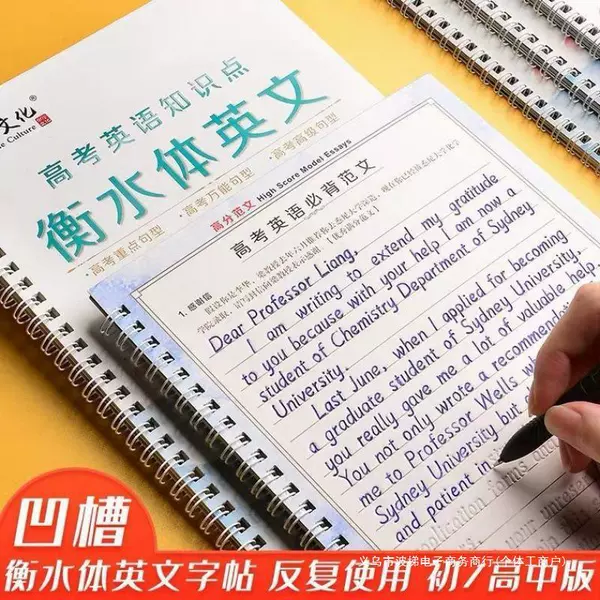 文化®
re Culture
高考英语知识点
衡水体英文
·高考重点句型 ·高考万能句型 ·高考高级句型
高分范文 High Score Model Essays
高考英语必背范文
1. 感谢信
Dear Professor Liang,
I am writing to extend my gratitude
to you because with your help I am now a
student of Chemistry Department of Sydney
University.
Last June, when I applied for becoming
a graduate student of Sydney University,
you really gave me a lot of valuable help.
You not only wrote a recommendation
me to Professor Wells w
Sydney University but a
and patient in
application forms and
your unreser
凹槽
衡水体英文字帖 反复使用 初/高中版
义乌市波梯电子商务商行(个体工商户)